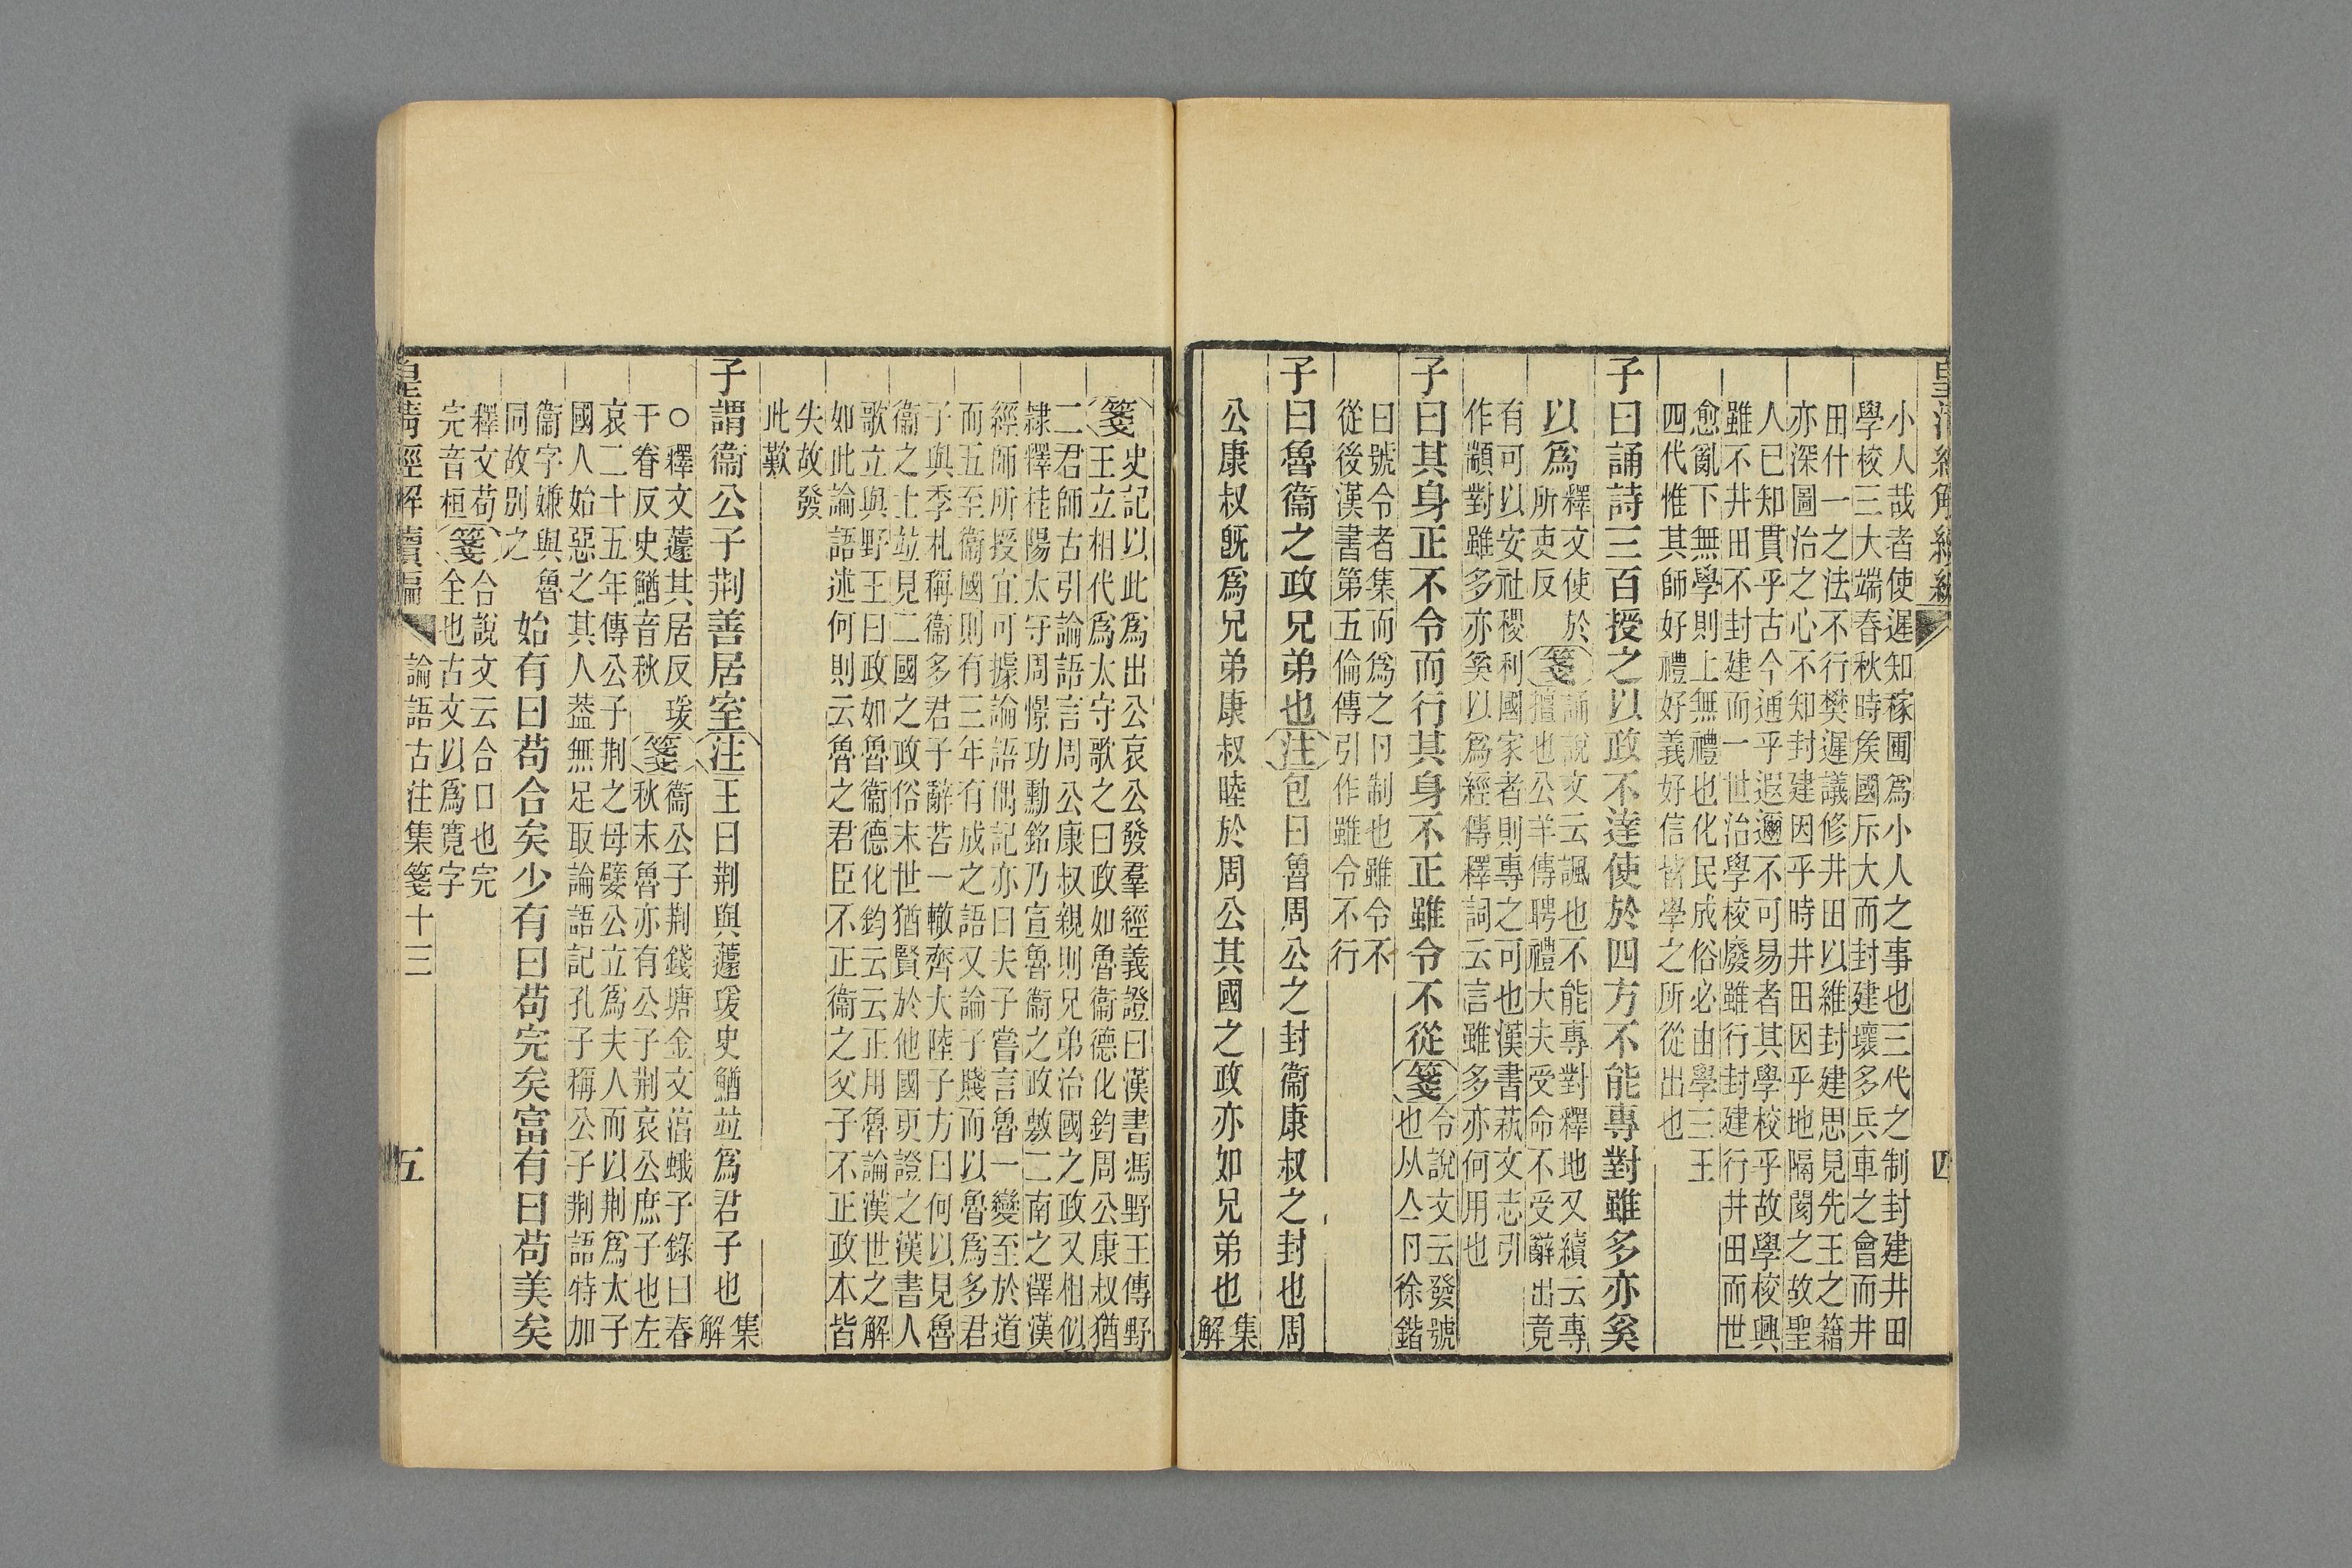 皇清經解續編　四
小人哉者使遲知稼圃爲小人之事也三代之制封建井田
學校三大端春秋時矦國斥大而封建壞多兵車之會而井
田什一之法不行樊遲議修井田以維封建思見先王之籍
亦深圖治之心不知封建因乎時井田因乎地隔閡之故聖
人已知貫乎古今通乎遐邇不可易者其學校乎故學校興
雖不井田不封建而一世治學校廢雖行封建行井田而世
愈亂下無學則上無禮也化民成俗必由學三王
四代惟其師好禮好義好信皆學之所從出也
子曰誦詩三百授之以政不達使於四方不能專對雖多亦奚
以爲釋文使於所吏反箋誦說文云諷也不能專對釋地又續云專
擅也公羊傳聘禮大夫受命不受辭出竟
有可以安社稷利國家者則專之可也漢書萟文志引
作顓對雖多亦奚以爲經傳釋詞云言雖多亦何用也
子曰其身正不令而行其身不正雖令不從箋令說文云發號
也从亼卪徐鍇
曰號令者集而爲之卪制也雖令不
從後漢書第五倫傳引作雖令不行
子曰魯衞之政兄弟也注包曰魯周公之封衞康叔之封也周
公康叔旣爲兄弟康叔睦於周公其國之政亦如兄弟也集解
箋史記以此爲出公哀公發羣經義證曰漢書馮野王傳野
王立相代爲太守歌之曰政如魯衞德化鈞周公康叔猶
二君師古引論語言周公康叔親則兄弟治國之政又相似
隸釋桂陽太守周憬功勳銘乃宣魯衞之政敷二南之澤漢
經師所授宜可據論語偶記亦曰夫子嘗言魯一變至於道
而五至衞國則有三年有成之語又論子賤而以魯爲多君
子與季札稱衞多君子辭若一轍齊大陸子方曰何以見魯
衞之士竝見二國之政俗末世猶賢於他國更證之漢書人
歌立與野王曰政如魯衞德化鈞云云正用魯論漢世之解
如此論語述何則云魯之君臣不正衞之父子不正政本皆
失故發
此歎
子謂衞公子荆善居室注王曰荆與蘧瑗史鰌竝爲君子也集解
○釋文蘧其居反瑗
于眷反史鰌音秋箋衞公子荆錢塘金文淓蛾子錄曰春
秋末魯亦有公子荆哀公庶子也左
哀二十五年傳公子荆之母嬖公立爲夫人而以荆爲太子
國人始惡之其人葢無足取論語記孔子稱公子荆語特加
衞字嫌與魯
同故別之始有曰苟合矣少有曰苟完矣富有曰苟美矣
釋文苟
完音桓箋合說文云合口也完
全也古文以爲寬字
皇清經解續編　論語古注集箋十三　五